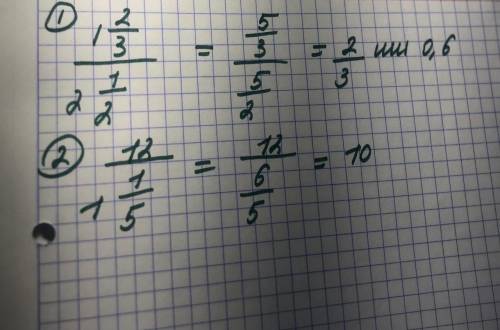 ① 1 2/3 / 2 1/2 = 5/3 / 5/2 = 2/3 или 0,6
② 12 / 1 1/5 = 12 / 6/5 = 10